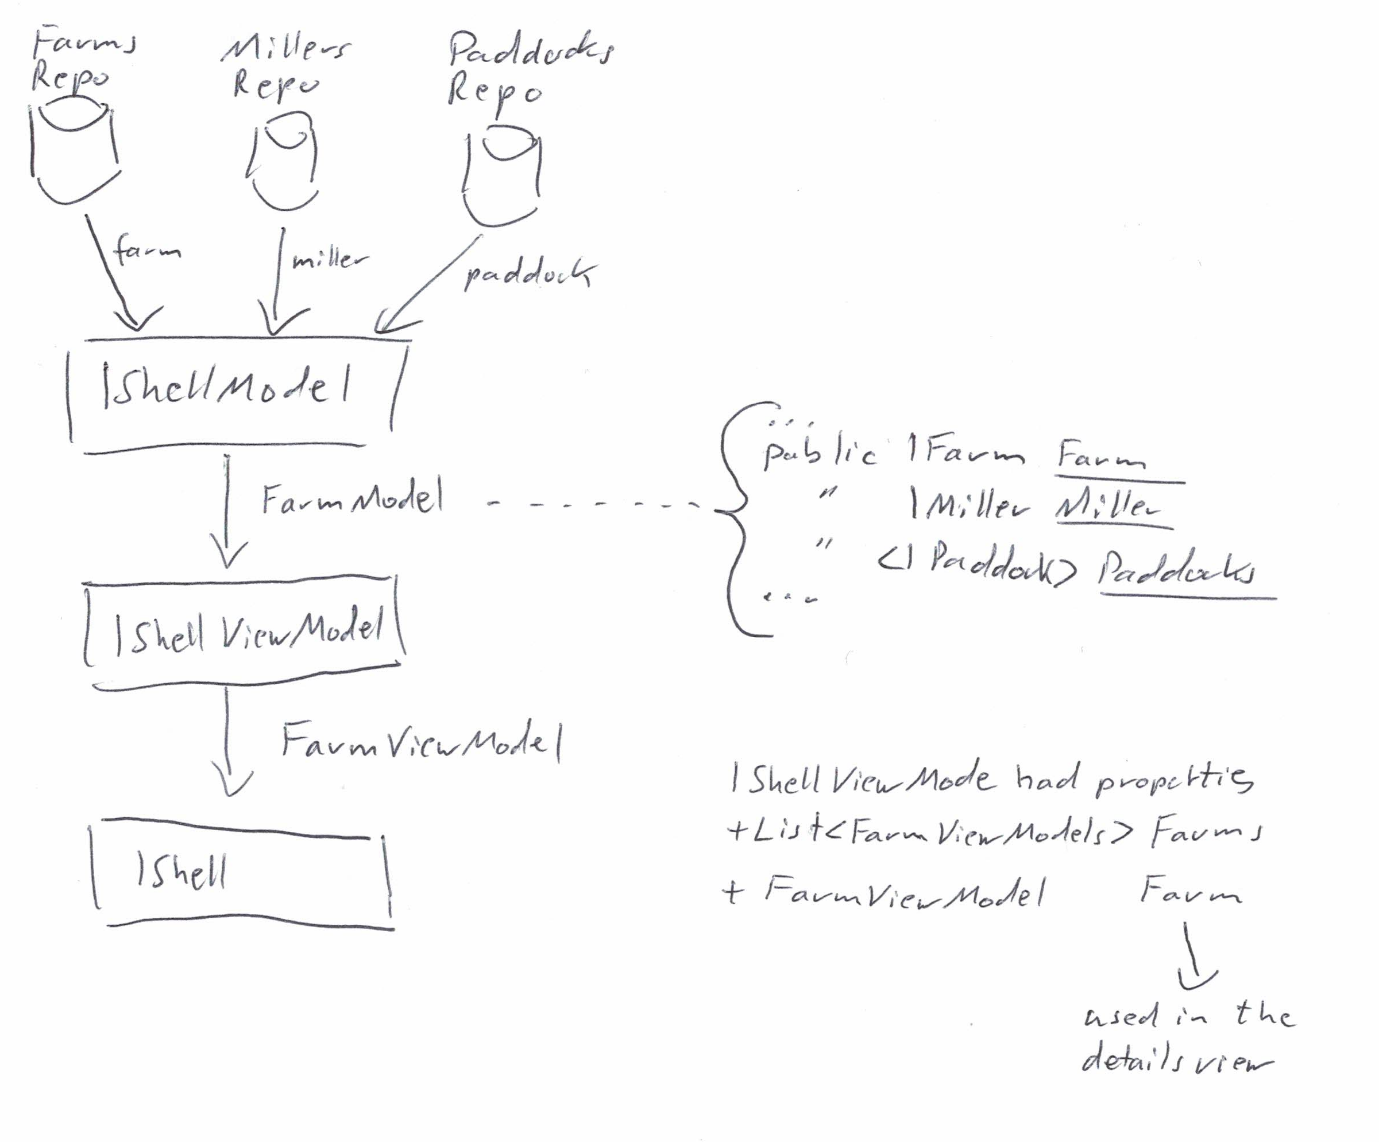 Farms
Repo
Millers
Repo
Paddocks
Repo
farm
miller
paddock
IShellModel
FarmModel
...
public IFarm Farm
" IMiller Miller
" <IPaddock> Paddocks
...
IShellViewModel
FarmViewModel
IShell
IShellViewMode had properties
+List<FarmViewModels> Farms
+ FarmViewModel Farm
used in the
details view